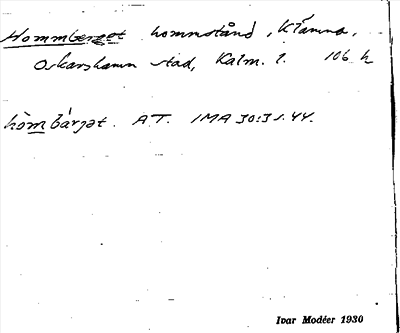 Hommberget hommstånd, Klämna,
Oskarshamn stad, Kalm. l. 106 h
hòmbárjət. A.T. IMA 30:31.44.
Ivar Modéer 1930